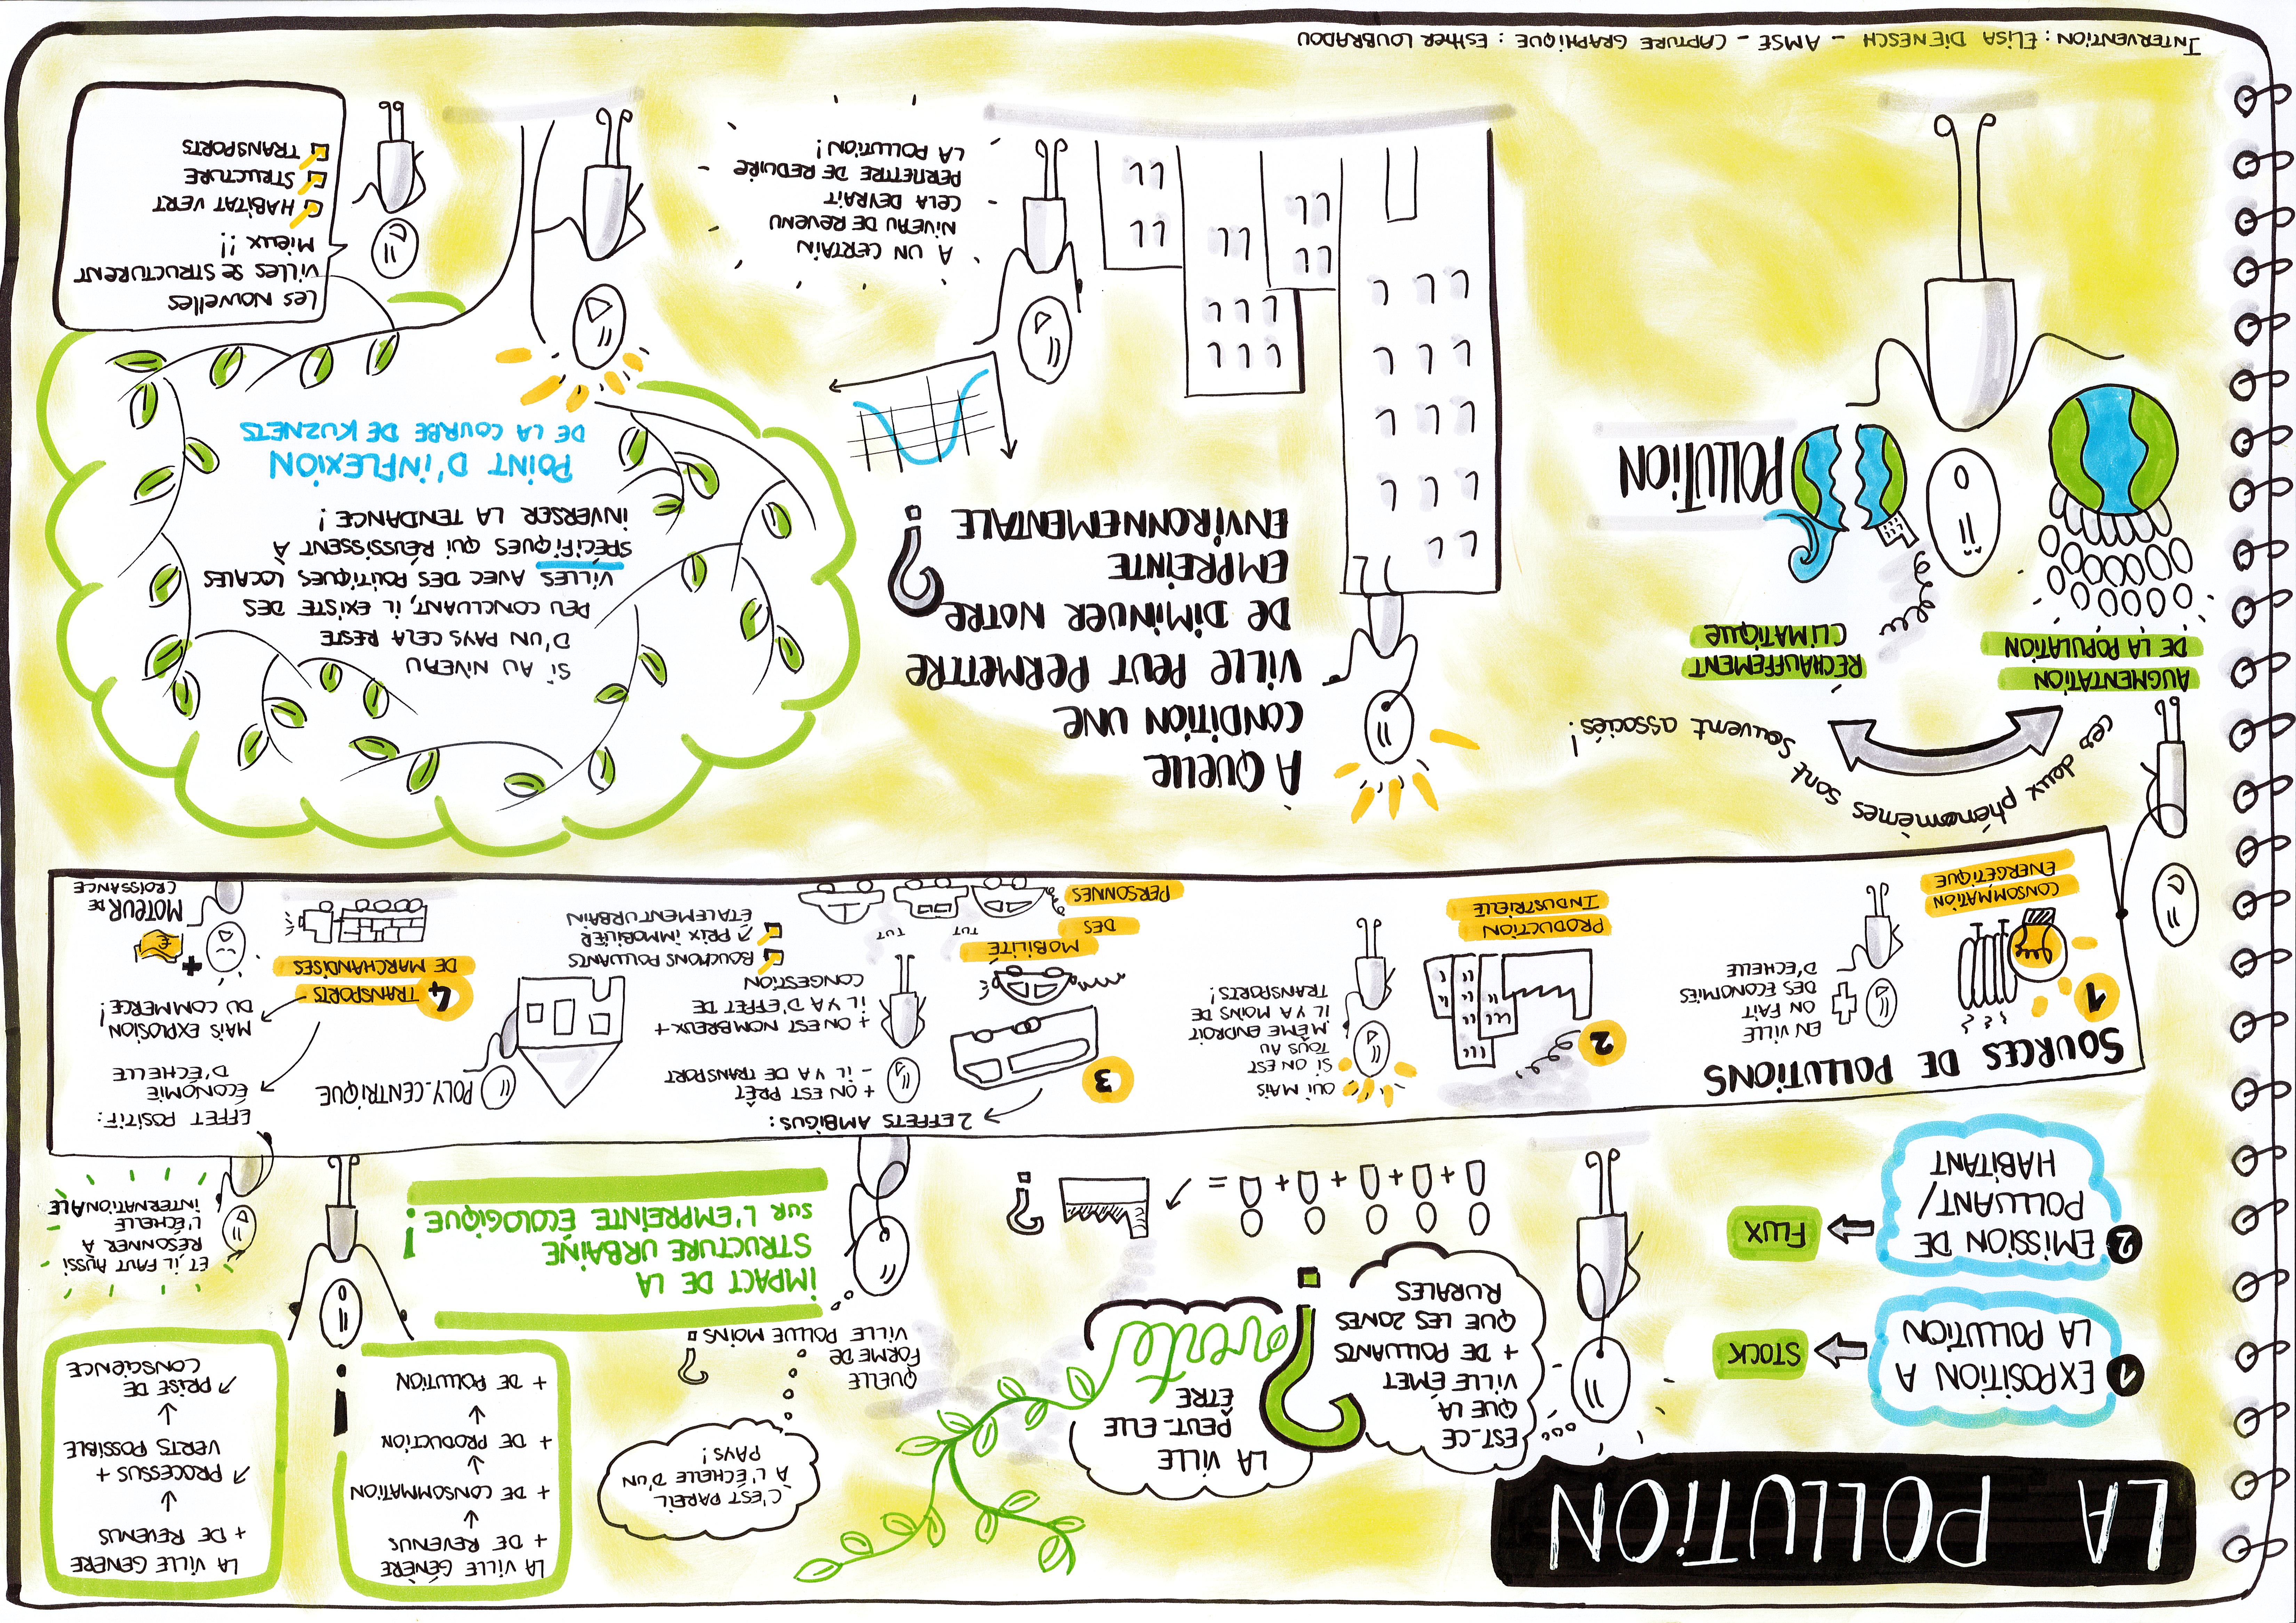 LA POLLUTION
1 EXPOSITION A
LA POLLUTION
STOCK
2 EMISSION DE
POLLUANT/
HABITANT
FLUX
EST-CE
QUE LA
VILLE ÉMET
+ DE POLLUANTS
QUE LES ZONES
RURALES
?
LA VILLE
PEUT-ELLE
ÊTRE
verte
+ + + + =
?
C'EST PAREIL
À L'ÉCHELLE D'UN
PAYS!
QUELLE
FORME DE
VILLE POLLUE MOINS
?
IMPACT DE LA
STRUCTURE URBAINE
SUR L'EMPREINTE ÉCOLOGIQUE!
LA VILLE GÉNÈRE
+ DE REVENUS
+ DE CONSOMMATION
+ DE PRODUCTION
+ DE POLLUTION
!
LA VILLE GENÈRE
+ DE REVENUS
PROCESSUS +
VERTS POSSIBLE
PRISE DE
CONSCIENCE
ET IL FAUT AUSSI
RÉSONNER A
L'ÉCHELLE
INTERNATIONALE
SOURCES DE POLLUTIONS
1
CONSOMMATION
ENERGÉTIQUE
EN VILLE
ON FAIT
DES ÉCONOMIES
D'ÉCHELLE
2
PRODUCTION
INDUSTRIELLE
OUI MAIS
SI ON EST
TOUS AU
MÊME ENDROIT
IL Y A MOINS DE
TRANSPORTS!
3
MOBILITÉ
DES
PERSONNES
TUT TUT
2 EFFETS AMBIGUS:
+ ON EST PRÊT
- IL Y A DE TRANSPORT
+ ON EST NOMBREUX +
IL Y A D'EFFET DE
CONGESTION
BOUCHONS POLLUANTS
↗ PRIX IMMOBILIER
ÉTALEMENT URBAIN
POLY-CENTRIQUE
4
TRANSPORTS
DE MARCHANDISES
EFFET POSITIF:
ÉCONOMIE
D'ÉCHELLE
MAIS EXPLOSION
DU COMMERCE!
+ €
MOTEUR DE
CROISSANCE
ces deux phénomènes sont souvent associés!
AUGMENTATION
DE LA POPULATION
RÉCHAUFFEMENT
CLIMATIQUE
POLLUTION
À QUELLE
CONDITION UNE
VILLE PEUT PERMETTRE
DE DIMINUER NOTRE
EMPREINTE
ENVIRONNEMENTALE
?
A UN CERTAIN
NIVEAU DE REVENU
CELA DEVRAIT
PERMETTRE DE REDUIRE
LA POLLUTION!
SI AU NIVEAU
D'UN PAYS CELA RESTE
PEU CONCLUANT, IL EXISTE DES
VILLES AVEC DES POLITIQUES LOCALES
SPÉCIFIQUES QUI RÉUSSISSENT À
INVERSER LA TENDANCE!
POINT D'INFLEXION
DE LA COURBE DE KUZNETS
LES NOUVELLES
VILLES SE STRUCTURENT
MIEUX!!
HABITAT VERT
STRUCTURE
TRANSPORTS
INTERVENTION: ELISA DIENESCH - AMSE - CAPTURE GRAPHIQUE: ESTHER LOUBRADOU